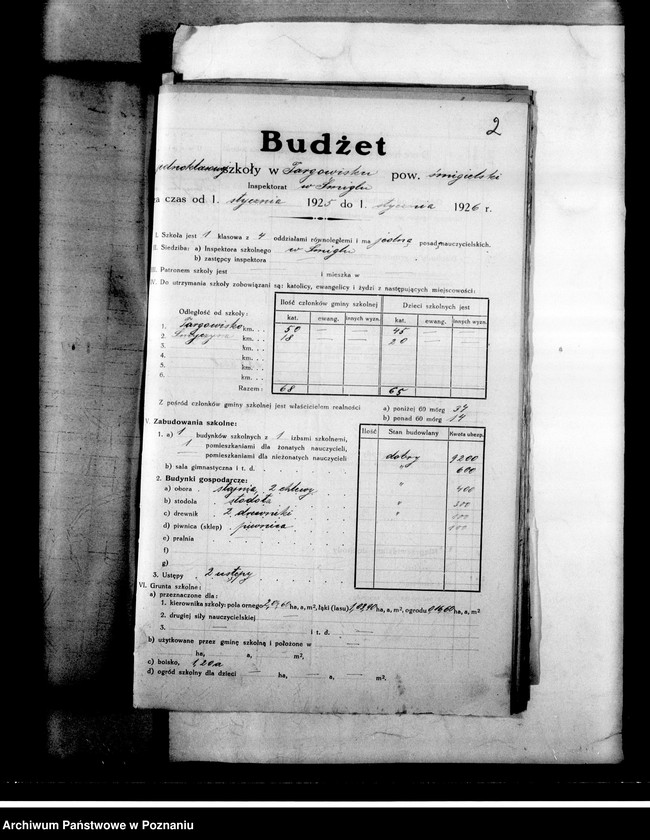 2
Budżet
jednoklasowej szkoły w Targowisku pow. śmigielski
Inspektorat w Śmiglu
na czas od 1. stycznia 1925 do 1. stycznia 1926 r.
I. Szkoła jest 1 klasowa z 4 oddziałami równoległemi i ma jedną posad nauczycielskich.
II. Siedziba: a) Inspektora szkolnego w Śmiglu
b) zastępcy inspektora
III. Patronem szkoły jest i mieszka w
IV. Do utrzymania szkoły zobowiązani są: katolicy, ewangelicy i żydzi z następujących miejscowości:
Odległość od szkoły:
Ilość członków gminy szkolnej Dzieci szkolnych jest
kat. ewang. innych wyzn. kat. ewang. innych wyzn.
1. Targowisko km. . . 50 — — 45 — —
2. km. . . 18 — — 20 — —
3. km. . .
4. km. . .
5. km. . .
6. km. . .
Razem: 68 65
Z pośród członków gminy szkolnej jest właścicielem realności a) poniżej 60 mórg 37
b) ponad 60 mórg 14
V. Zabudowania szkolne:
Ilość Stan budowlany Kwota ubezp.
1. a) 1 budynków szkolnych z 1 izbami szkolnemi,
1 pomieszkaniami dla żonatych nauczycieli,
— pomieszkaniami dla nieżonatych nauczycieli dobry 9200
b) sala gimnastyczna i t. d. " 600
2. Budynki gospodarcze:
a) obora . stajnia, 2 chlewy " 400
b) stodoła . stodoła " 300
c) drewnik . 2 drewniki "
d) piwnica (sklep) . piwnica
e) pralnia
f)
g)
3. Ustępy . 2 ustępy
VI. Grunta szkolne:
a) przeznaczone dla:
1. kierownika szkoły: pola ornego ha, a, m², łąki (lasu) ha, a, m², ogrodu ha, a, m²
2. drugiej siły nauczycielskiej —
3. — i t. d. —
b) użytkowane przez gminę szkolną i położone w —
ha, — a, — m²,
c) boisko, 1,20 a
d) ogród szkolny dla dzieci — ha, — a, — m².
6
Archiwum Państwowe w Poznaniu